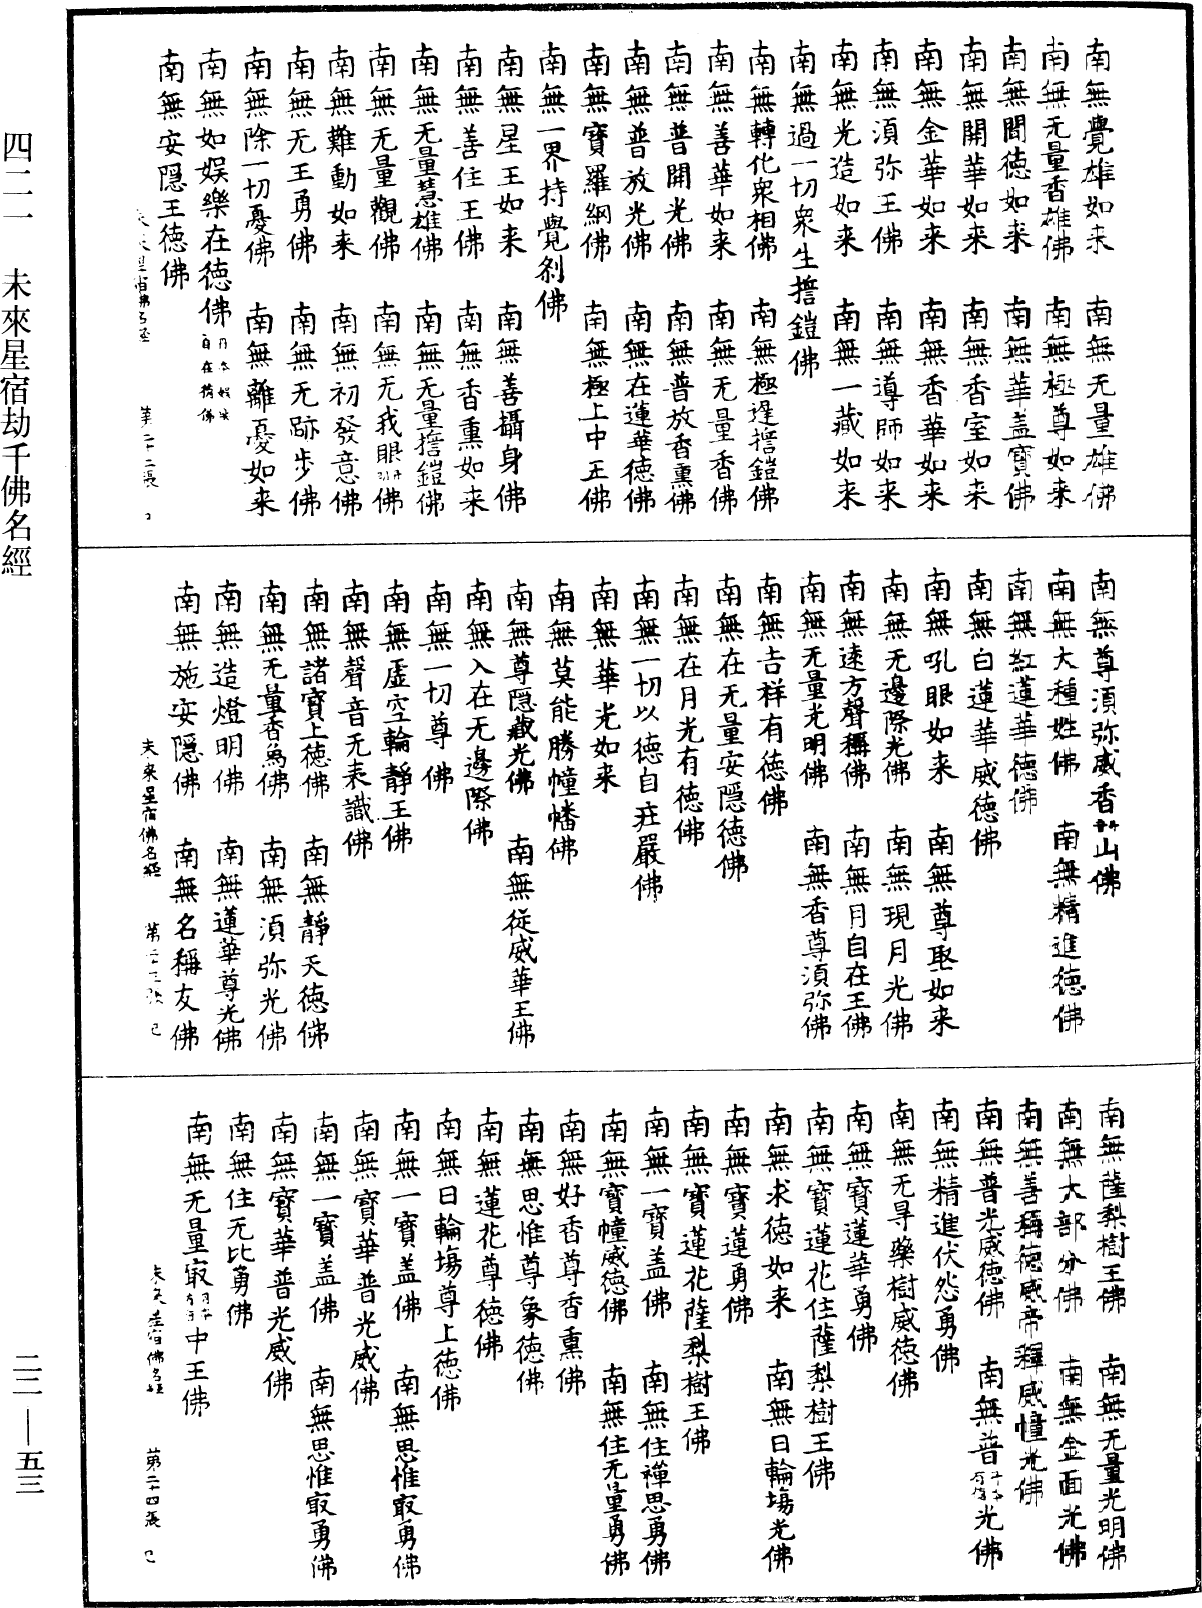 南無覺雄如来　南無无量雄佛
南無无量香雄佛　南無極尊如来
南無聞徳如来　南無華盖寶佛
南無開華如来　南無香室如来
南無金華如来　南無香華如来
南無湏弥王佛　南無導師如来
南無光造如来　南無一藏如来
南無過一切衆生㨾鎧佛
南無轉化衆相佛　南無極遅㨾鎧佛
南無善華如来　南無无量香佛
南無普開光佛　南無普放香熏佛
南無普放光佛　南無在蓮華徳佛
南無寶羅網佛　南無極上中王佛
南無一界持覺刹佛
南無星王如来　南無善攝身佛
南無善住王佛　南無香熏如来
南無无量慧雄佛　南無无量㨾鎧佛
南無无量觀佛　南無无我眼佛
南無難動如来　南無初發意佛
南無无王勇佛　南無无跡步佛
南無除一切憂佛　南無離憂如来
南無如娱樂在徳佛
南無安隠王徳佛
未来星宿佛名經　第二十二張
南無尊湏弥威香山佛
南無大種姓佛　南無精進徳佛
南無紅蓮華徳佛
南無白蓮華威徳佛
南無吼眼如来　南無尊聚如来
南無无邊際光佛　南無現月光佛
南無逺方聲稱佛　南無月自在王佛
南無无量光明佛　南無香尊湏弥佛
南無吉祥有徳佛
南無在无量安隠徳佛
南無在月光有徳佛
南無一切以徳自莊嚴佛
南無華光如来
南無莫能勝幢幡佛
南無尊隠藏光佛　南無従威華王佛
南無入在无邊際佛
南無一切尊佛
南無虚空輪静王佛
南無聲音无表識佛
南無諸寶上徳佛　南無静天徳佛
南無无量香爲佛　南無湏弥光佛
南無造燈明佛　南無蓮華尊光佛
南無施安隠佛　南無名稱友佛
未來星宿佛名經　第二十三張　已
南無薩梨樹王佛　南無无量光明佛
南無大部分佛　南無金面光佛
南無善稱徳威帝釋威幢光佛
南無普光威徳佛　南無普光佛
南無精進伏怨勇佛
南無无㝵藥樹威徳佛
南無寳蓮華勇佛
南無寳蓮花住薩梨樹王佛
南無求徳如来　南無日輪塲光佛
南無寳蓮勇佛
南無寳蓮花薩梨樹王佛
南無一寳盖佛　南無住禪思勇佛
南無寳幢威徳佛　南無住无量勇佛
南無好香尊香熏佛
南無思惟尊象徳佛
南無蓮花尊徳佛
南無日輪塲尊上徳佛
南無一寳盖佛　南無思惟㝡勇佛
南無寳華普光威佛
南無一寳盖佛　南無思惟㝡勇佛
南無寳華普光威佛
南無住无比勇佛
南無无量㝡中王佛
未來星宿佛名經　第二十四張　已
四二一　未來星宿劫千佛名經
二二—五三